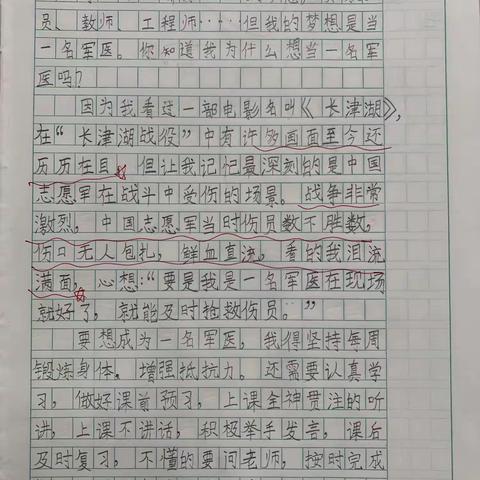 员、教师、工程师……但我的梦想是当
一名军医。你知道我为什么想当一名军
医吗?
因为我看过一部电影名叫《长津湖》,
在“长津湖战役”中有许多画面至今还
历历在目。但让我记忆最深刻的是中国
志愿军在战斗中受伤的场景。战争非常
激烈,中国志愿军当时伤员数不胜数,
伤口无人包扎,鲜血直流,看的我泪流
满面,心想:“要是我是一名军医在现场
就好了,就能及时抢救伤员。”
要想成为一名军医,我得坚持每周
锻炼身体,增强抵抗力。还需要认真学
习,做好课前预习,上课全神贯注的听
讲,上课不讲话,积极举手发言,课后
及时复习,不懂的要问老师,按时完成